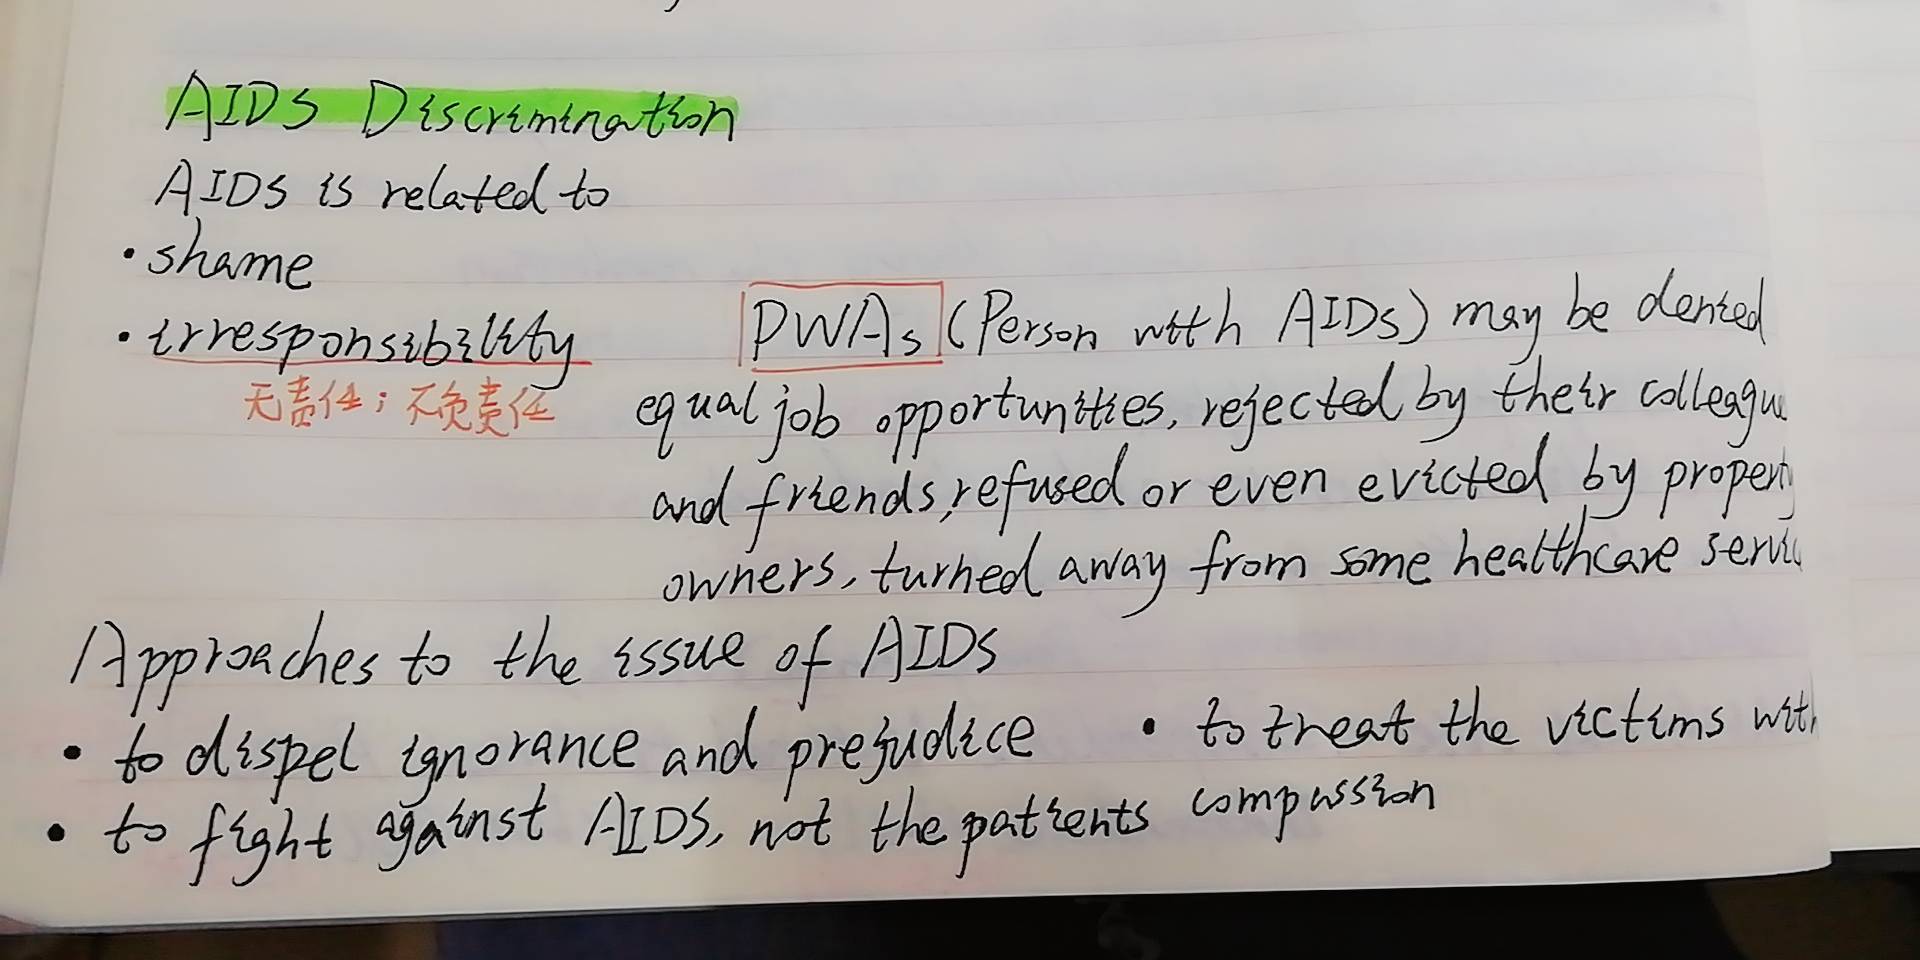 AIDS Discrimination
AIDS is related to
• shame
• irresponsibility
无责任；不负责任
PWAs (Person with AIDS) may be denied
equal job opportunities, rejected by their colleagu
and friends, refused or even evicted by property
owners, turned away from some healthcare servic
Approaches to the issue of AIDS
• to dispel ignorance and prejudice
• to fight against AIDS, not the patients
• to treat the victims with
compassion